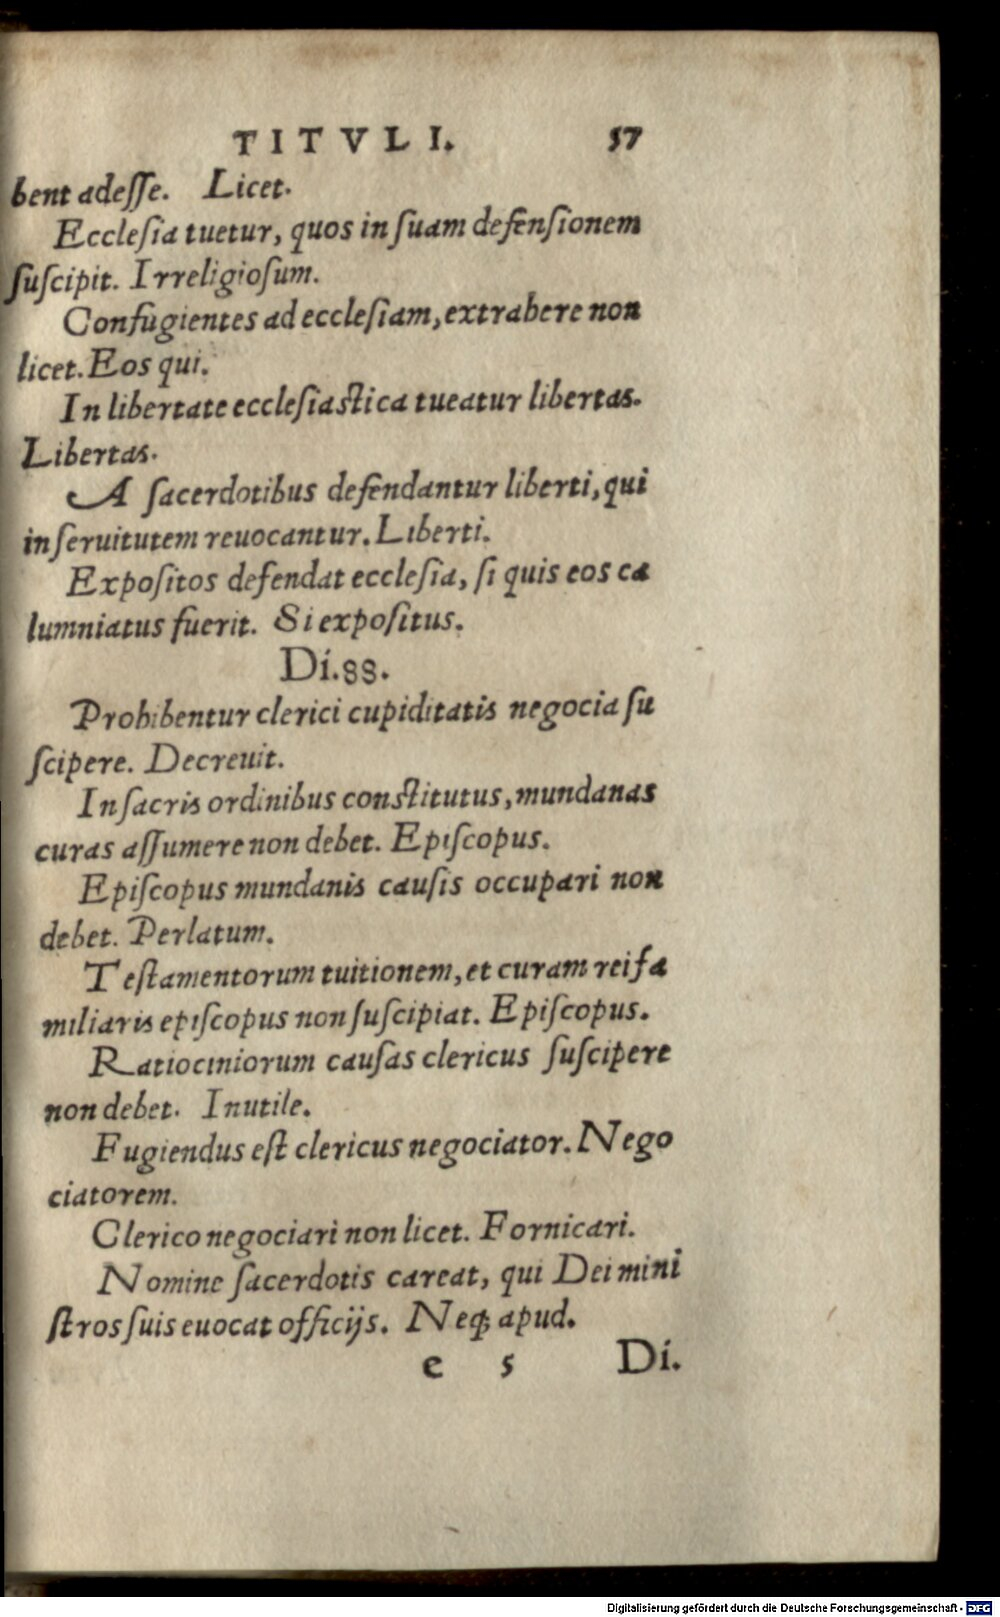 TITVLI. 57
bent adesse. Licet.
Ecclesia tuetur, quos in suam defensionem
suscipit. Irreligiosum.
Confugientes ad ecclesiam, extrahere non
licet. Eos qui.
In libertate ecclesiastica tueatur libertas.
Libertas.
A sacerdotibus defendantur liberti, qui
in seruitutem reuocantur. Liberti.
Expositos defendat ecclesia, si quis eos ca
lumniatus fuerit. Si expositus.
Di.88.
Prohibentur clerici cupiditatis negocia su
scipere. Decreuit.
In sacris ordinibus constitutus, mundanas
curas assumere non debet. Episcopus.
Episcopus mundanis causis occupari non
debet. Perlatum.
Testamentorum tuitionem, et curam rei fa
miliaris episcopus non suscipiat. Episcopus.
Ratiociniorum causas clericus suscipere
non debet. Inutile.
Fugiendus est clericus negociator. Nego
ciatorem.
Clerico negociari non licet. Fornicari.
Nomine sacerdotis careat, qui Dei mini
stros suis euocat officijs. Neq; apud.
e 5 Di.
Digitalisierung gefördert durch die Deutsche Forschungsgemeinschaft - DFG